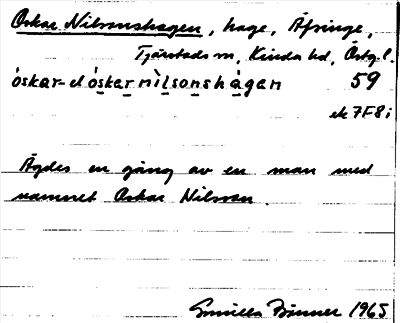 Oskar Nilssonshagen, hage, Äfringe,
Tjärstads sn, Kinda hd, Östgl.
òskar- el òskarnìlsonshàgan 59
ek 7F8i
Ägdes en gång av en man med
namnet Oskar Nilsson.
Gunilla 1965